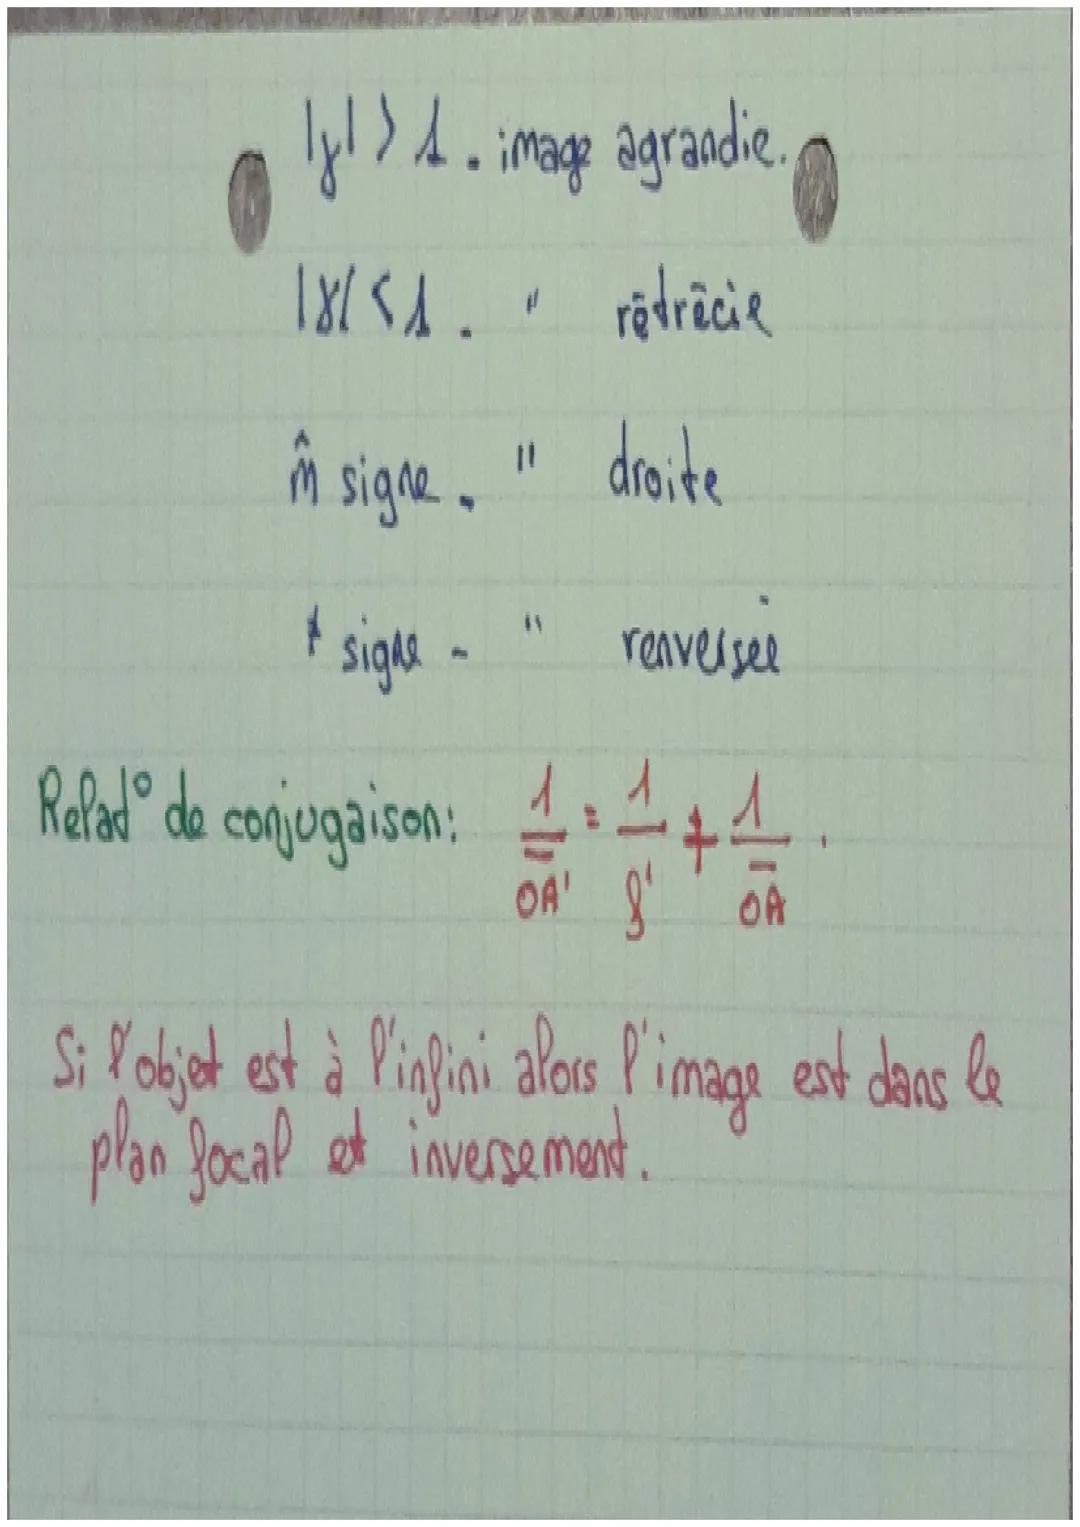 |γ| > 1. image agrandie.
|γ| < 1. " rétrécie
m̂ signe. " droite
≠ signe - " renversée
Relat° de conjugaison: 1/OA' = 1/f' + 1/OA.
Si l'objet est à l'infini alors l'image est dans le
plan focal et inversement.